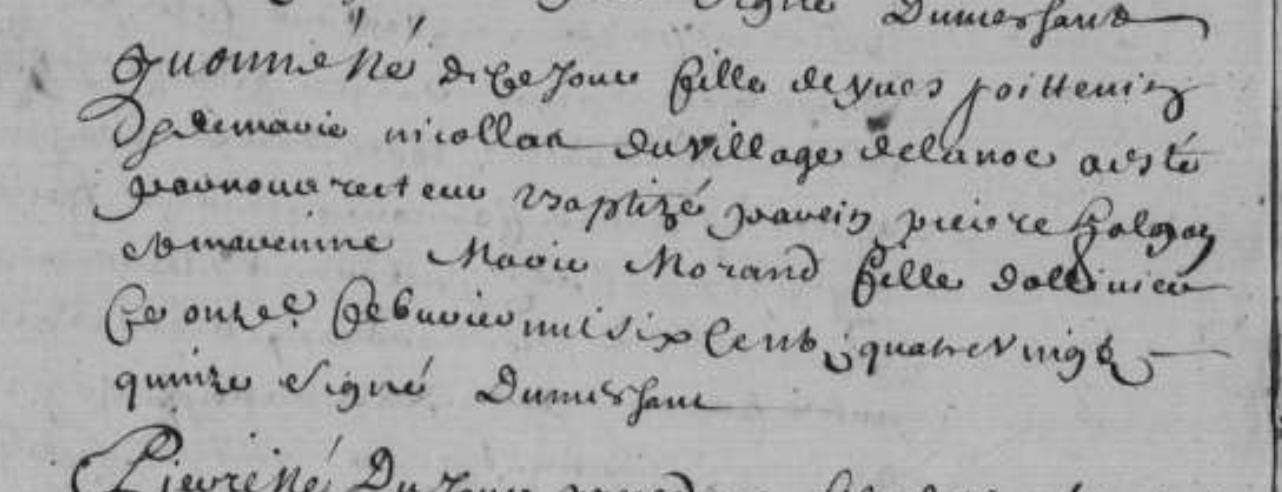 Signé Dumeshaut
Yuonne né de ce Jour fille de yues poitteuin
Et de marie nicollas du village de lanoe a esté
par nous recteur Baptizé parein pierre
et mareinne Marie Morand fille dollivier
ce onze e februier mil six cents quatre vingt
quinze Signé Dumeshaut
Pierre né Du Jour